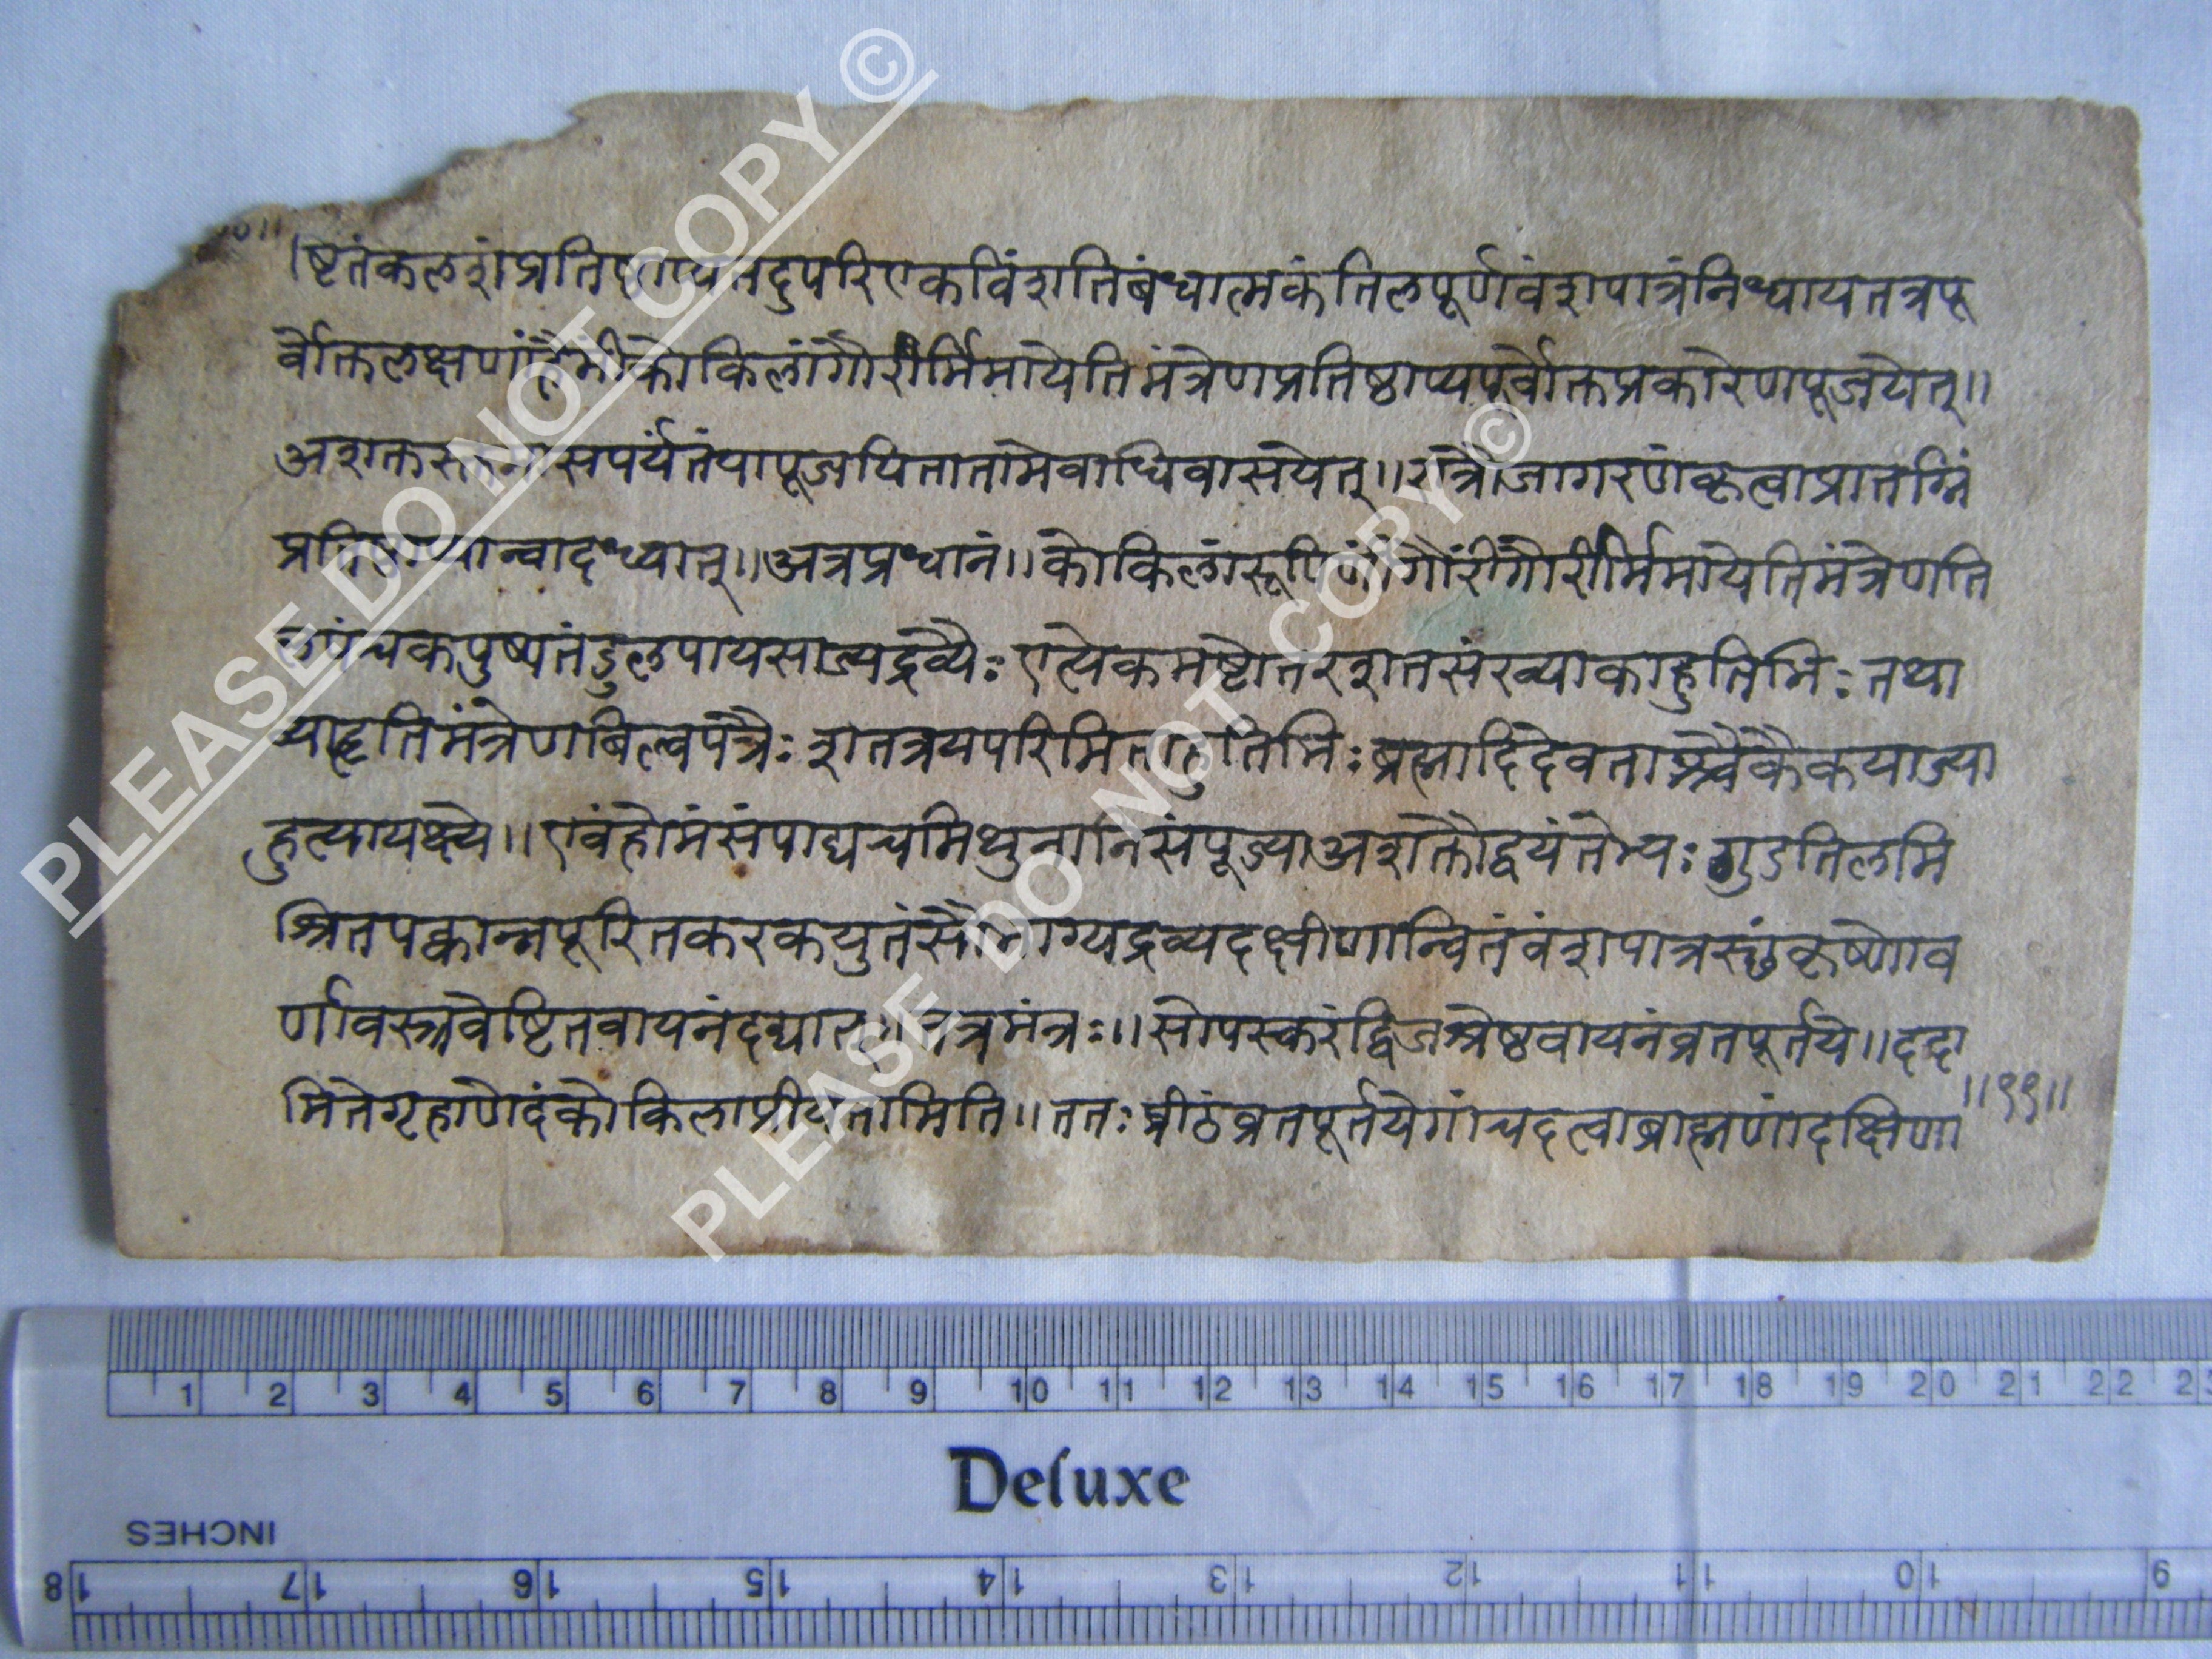 ष्टितंकलशंप्रतिष्ठाप्यतदुपरिएकविंशतिबंधात्मकंतिलपूर्णवंशपात्रंनिधायतत्रपू
र्वोक्तलक्षणांहैमीकोकिलांगौरीर्मिमायेतिमंत्रेणप्रतिष्ठाप्यपूर्वोक्तप्रकारेणपूजयेत्॥
अशक्तस्तुमासपर्यंतंयापूजयितातामेवाधिवासयेत्॥रात्रौजागरणंकृत्वाप्रातग्निं
प्रतिष्ठाप्यान्वादध्यात्॥अत्रप्रधानं॥कोकिलारूपिणींगौंरींगौरीर्मिमायेतिमंत्रेणति
लपंचकपुष्पतंडुलपायसाज्यद्रव्यैः एत्येकमष्टोत्तरशतसंख्याकाहुतिभिः तथा
व्याहृतिमंत्रेणबिल्वपत्रैः शतत्रयपरिमिताहुतिभिः ब्रह्मादिदेवताश्चैकैकयाज्या
हुत्यायक्ष्ये॥एवंहोमंसंपाद्यचमिथुनानिसंपूज्याअशक्तौद्वयंतेभ्यः गुडतिलमि
श्रितपक्वान्नपूरितकरकयुतंसौभाग्यद्रव्यदक्षीणान्वितंवंशपात्रस्छंकृष्णोव
र्णावस्त्रवेष्टितवायनंदद्यात्॥तत्रमंत्रः॥सोपस्करंद्विजश्रेष्ठवायनंव्रतपूर्तये॥ददा
मितेगृहाणेदंकोकिलाप्रीयतामिति॥ततः प्रीठंव्रतपूर्तयेगांचदत्वाब्राह्मणांदक्षिणा
॥११॥
PLEASE DO NOT COPY ©
PLEASE DO NOT COPY ©
1 2 3 4 5 6 7 8 9 10 11 12 13 14 15 16 17 18 19 20 21 22
Deluxe
INCHES
18 17 16 15 14 13 12 11 10 9